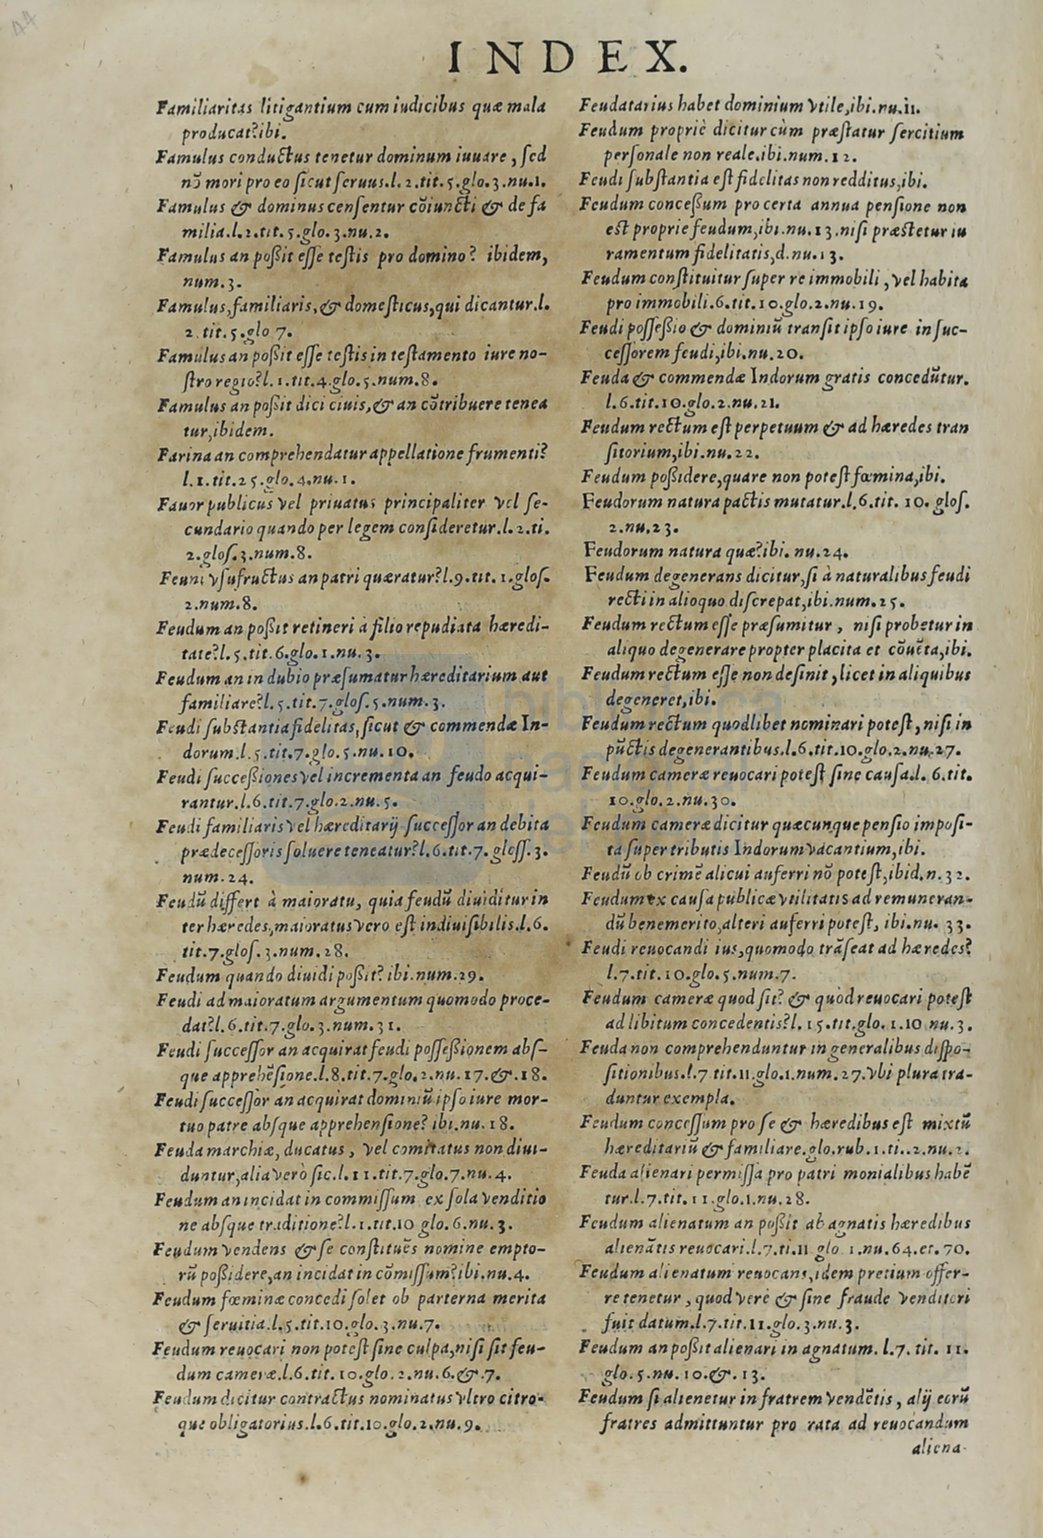 INDEX.
Familiaritas litigantium cum iudicibus quæ mala
producat? ibi.
Famulus conductus tenetur dominum iuuare, sed
nõ mori pro eo sicut seruus.l.2.tit.5.glo.3.nu.1.
Famulus & dominus censentur cõiuncti & de fa
milia.l.2.tit.5.glo.3.nu.2.
Famulus an possit esse testis pro domino? ibidem,
num.3.
Famulus,familiaris,& domesticus,qui dicantur.l.
2.tit.5.glo 7.
Famulus an possit esse testis in testamento iure no-
stro regio?l.1.tit.4.glo.5.num.8.
Famulus an possit dici ciuis,& an cõtribuere tenea
tur,ibidem.
Farina an comprehendatur appellatione frumenti?
l.1.tit.25.glo.4.nu.1.
Fauor publicus vel priuatus principaliter vel se-
cundario quando per legem consideretur.l.2.ti.
2.glos.3.num.8.
Feuni vsufructus an patri quæratur?l.9.tit.1.glos.
2.num.8.
Feudum an possit retineri à filio repudiata hæredi-
tate?l.5.tit.6.glo.1.nu.3.
Feudum an in dubio præsumatur hæreditarium aut
familiare?l.5.tit.7.glos.5.num.3.
Feudi substantia fidelitas, sicut & commendæ In-
dorum.l.5.tit.7.glo.5.nu.10.
Feudi successiones vel incrementa an feudo acqui-
rantur.l.6.tit.7.glo.2.nu.5.
Feudi familiaris vel hæreditarij successor an debita
prædecessoris soluere teneatur?l.6.tit.7.gloss.3.
num.24.
Feudũ differt à maioratu, quia feudũ diuiditur in
ter hæredes,maioratus vero est indiuisibilis.l.6.
tit.7.glos.3.num.28.
Feudum quando diuidi possit? ibi.num.29.
Feudi ad maioratum argumentum quomodo proce-
dat?l.6.tit.7.glo.3.num.31.
Feudi successor an acquirat feudi possessionem abs-
que apprehẽsione.l.8.tit.7.glo.2.nu.17.&.18.
Feudi successor an acquirat dominiũ ipso iure mor-
tuo patre absque apprehensione? ibi.nu.18.
Feuda marchiæ, ducatus, vel comitatus non diui-
duntur,alia verò sic.l.11.tit.7.glo.7.nu.4.
Feudum an incidat in commissum ex sola venditio
ne absque traditione?l.1.tit.10 glo.6.nu.3.
Feudum vendens & se constituẽs nomine empto-
rũ possidere,an incidat in cõmissum?ibi.nu.4.
Feudum fœminæ concedi solet ob parterna merita
& seruitia.l.5.tit.10.glo.3.nu.7.
Feudum reuocari non potest sine culpa,nisi sit feu-
dum cameræ.l.6.tit.10.glo.2.nu.6.&.7.
Feudum dicitur contractus nominatus vltro citro-
que obligatorius.l.6.tit.10.glo.2.nu.9.
Feudatarius habet dominium vtile,ibi.nu.11.
Feudum propriè dicitur cùm præstatur sercitium
personale non reale.ibi.num.12.
Feudi substantia est fidelitas non redditus,ibi.
Feudum concessum pro certa annua pensione non
est proprie feudum,ibi.nu.13.nisi præstetur iu
ramentum fidelitatis,d.nu.13.
Feudum constituitur super re immobili, vel habita
pro immobili.6.tit.10.glo.2.nu.19.
Feudi possessio & dominiũ transit ipso iure in suc-
cessorem feudi,ibi.nu.20.
Feuda & commendæ Indorum gratis concedũtur.
l.6.tit.10.glo.2.nu.21.
Feudum rectum est perpetuum & ad hæredes tran
sitorium,ibi.nu.22.
Feudum possidere,quare non potest fœmina,ibi.
Feudorum natura pactis mutatur.l.6.tit.10.glos.
2.nu.23.
Feudorum natura quæ?ibi.nu.24.
Feudum degenerans dicitur,si à naturalibus feudi
recti in alioquo discrepat,ibi.num.25.
Feudum rectum esse præsumitur, nisi probetur in
aliquo degenerare propter placita et cõuẽta,ibi.
Feudum rectum esse non definit, licet in aliquibus
degeneret,ibi.
Feudum rectum quodlibet nominari potest, nisi in
pũctis degenerantibus.l.6.tit.10.glo.2.nu.27.
Feudum cameræ reuocari potest sine causa.l.6.tit.
10.glo.2.nu.30.
Feudum cameræ dicitur quæcunque pensio imposi-
ta super tributis Indorum vacantium,ibi.
Feudũ ob crimẽ alicui auferri nõ potest,ibid.n.32.
Feudum ex causa publicæ vtilitatis ad remuneran-
dũ benemerito,alteri auferri potest, ibi.nu.33.
Feudi reuocandi ius,quomodo trãseat ad hæredes?
l.7.tit.10.glo.5.num.7.
Feudum cameræ quod sit? & quòd reuocari potest
ad libitum concedentis?l.15.tit.glo.1.10.nu.3.
Feuda non comprehenduntur in generalibus dispo-
sitionibus.l.7 tit.11.glo.1.num.27.vbi plura tra-
duntur exempla.
Feudum concessum pro se & hæredibus est mixtũ
hæreditariũ & familiare.glo.rub.1.ti..2.nu.2.
Feuda alienari permissa pro patri monialibus habẽ
tur.l.7.tit.11.glo.1.nu.28.
Feudum alienatum an possit ab agnatis hæredibus
alienãtis reuocari.l.7.ti.11 glo 1.nu.64.et.70.
Feudum alienatum reuocans,idem pretium offer-
re tenetur, quod verè & sine fraude venditori
fuit datum.l.7.tit.11.glo.3.nu.3.
Feudum an possit alienari in agnatum. l.7.tit.11.
glo.5.nu.10.&.13.
Feudum si alienetur in fratrem vendẽtis, alij eorũ
fratres admittuntur pro rata ad reuocandum
aliena-